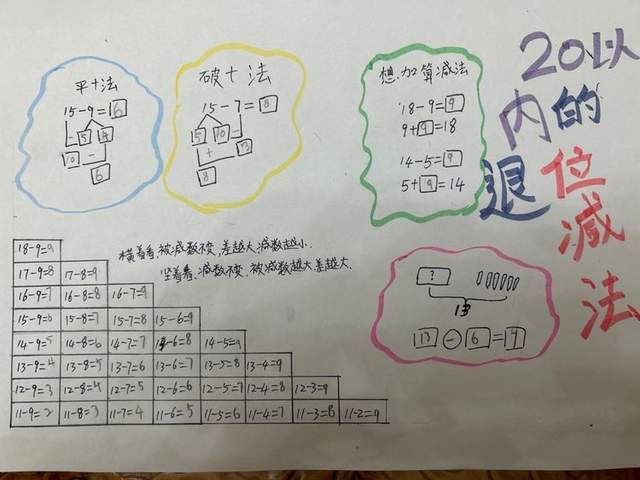 20以
内的
退位
减
法
平十法
15-9=6
5 4
10 -
6
破十法
15-7=8
5 10 -
+ 3
8
想加算减法
18-9=9
9+9=18
14-5=9
5+9=14
横着看,被减数不变,差越大,减数越小.
竖着看,减数不变,被减数越大差越大.
?
13
13-6=9
18-9=9
17-9=8 17-8=9
16-9=7 16-8=8 16-7=9
15-9=6 15-8=7 15-7=8 15-6=9
14-9=5 14-8=6 14-7=7 14-6=8 14-5=9
13-9=4 13-8=5 13-7=6 13-6=7 13-5=8 13-4=9
12-9=3 12-8=4 12-7=5 12-6=6 12-5=7 12-4=8 12-3=9
11-9=2 11-8=3 11-7=4 11-6=5 11-5=6 11-4=7 11-3=8 11-2=9